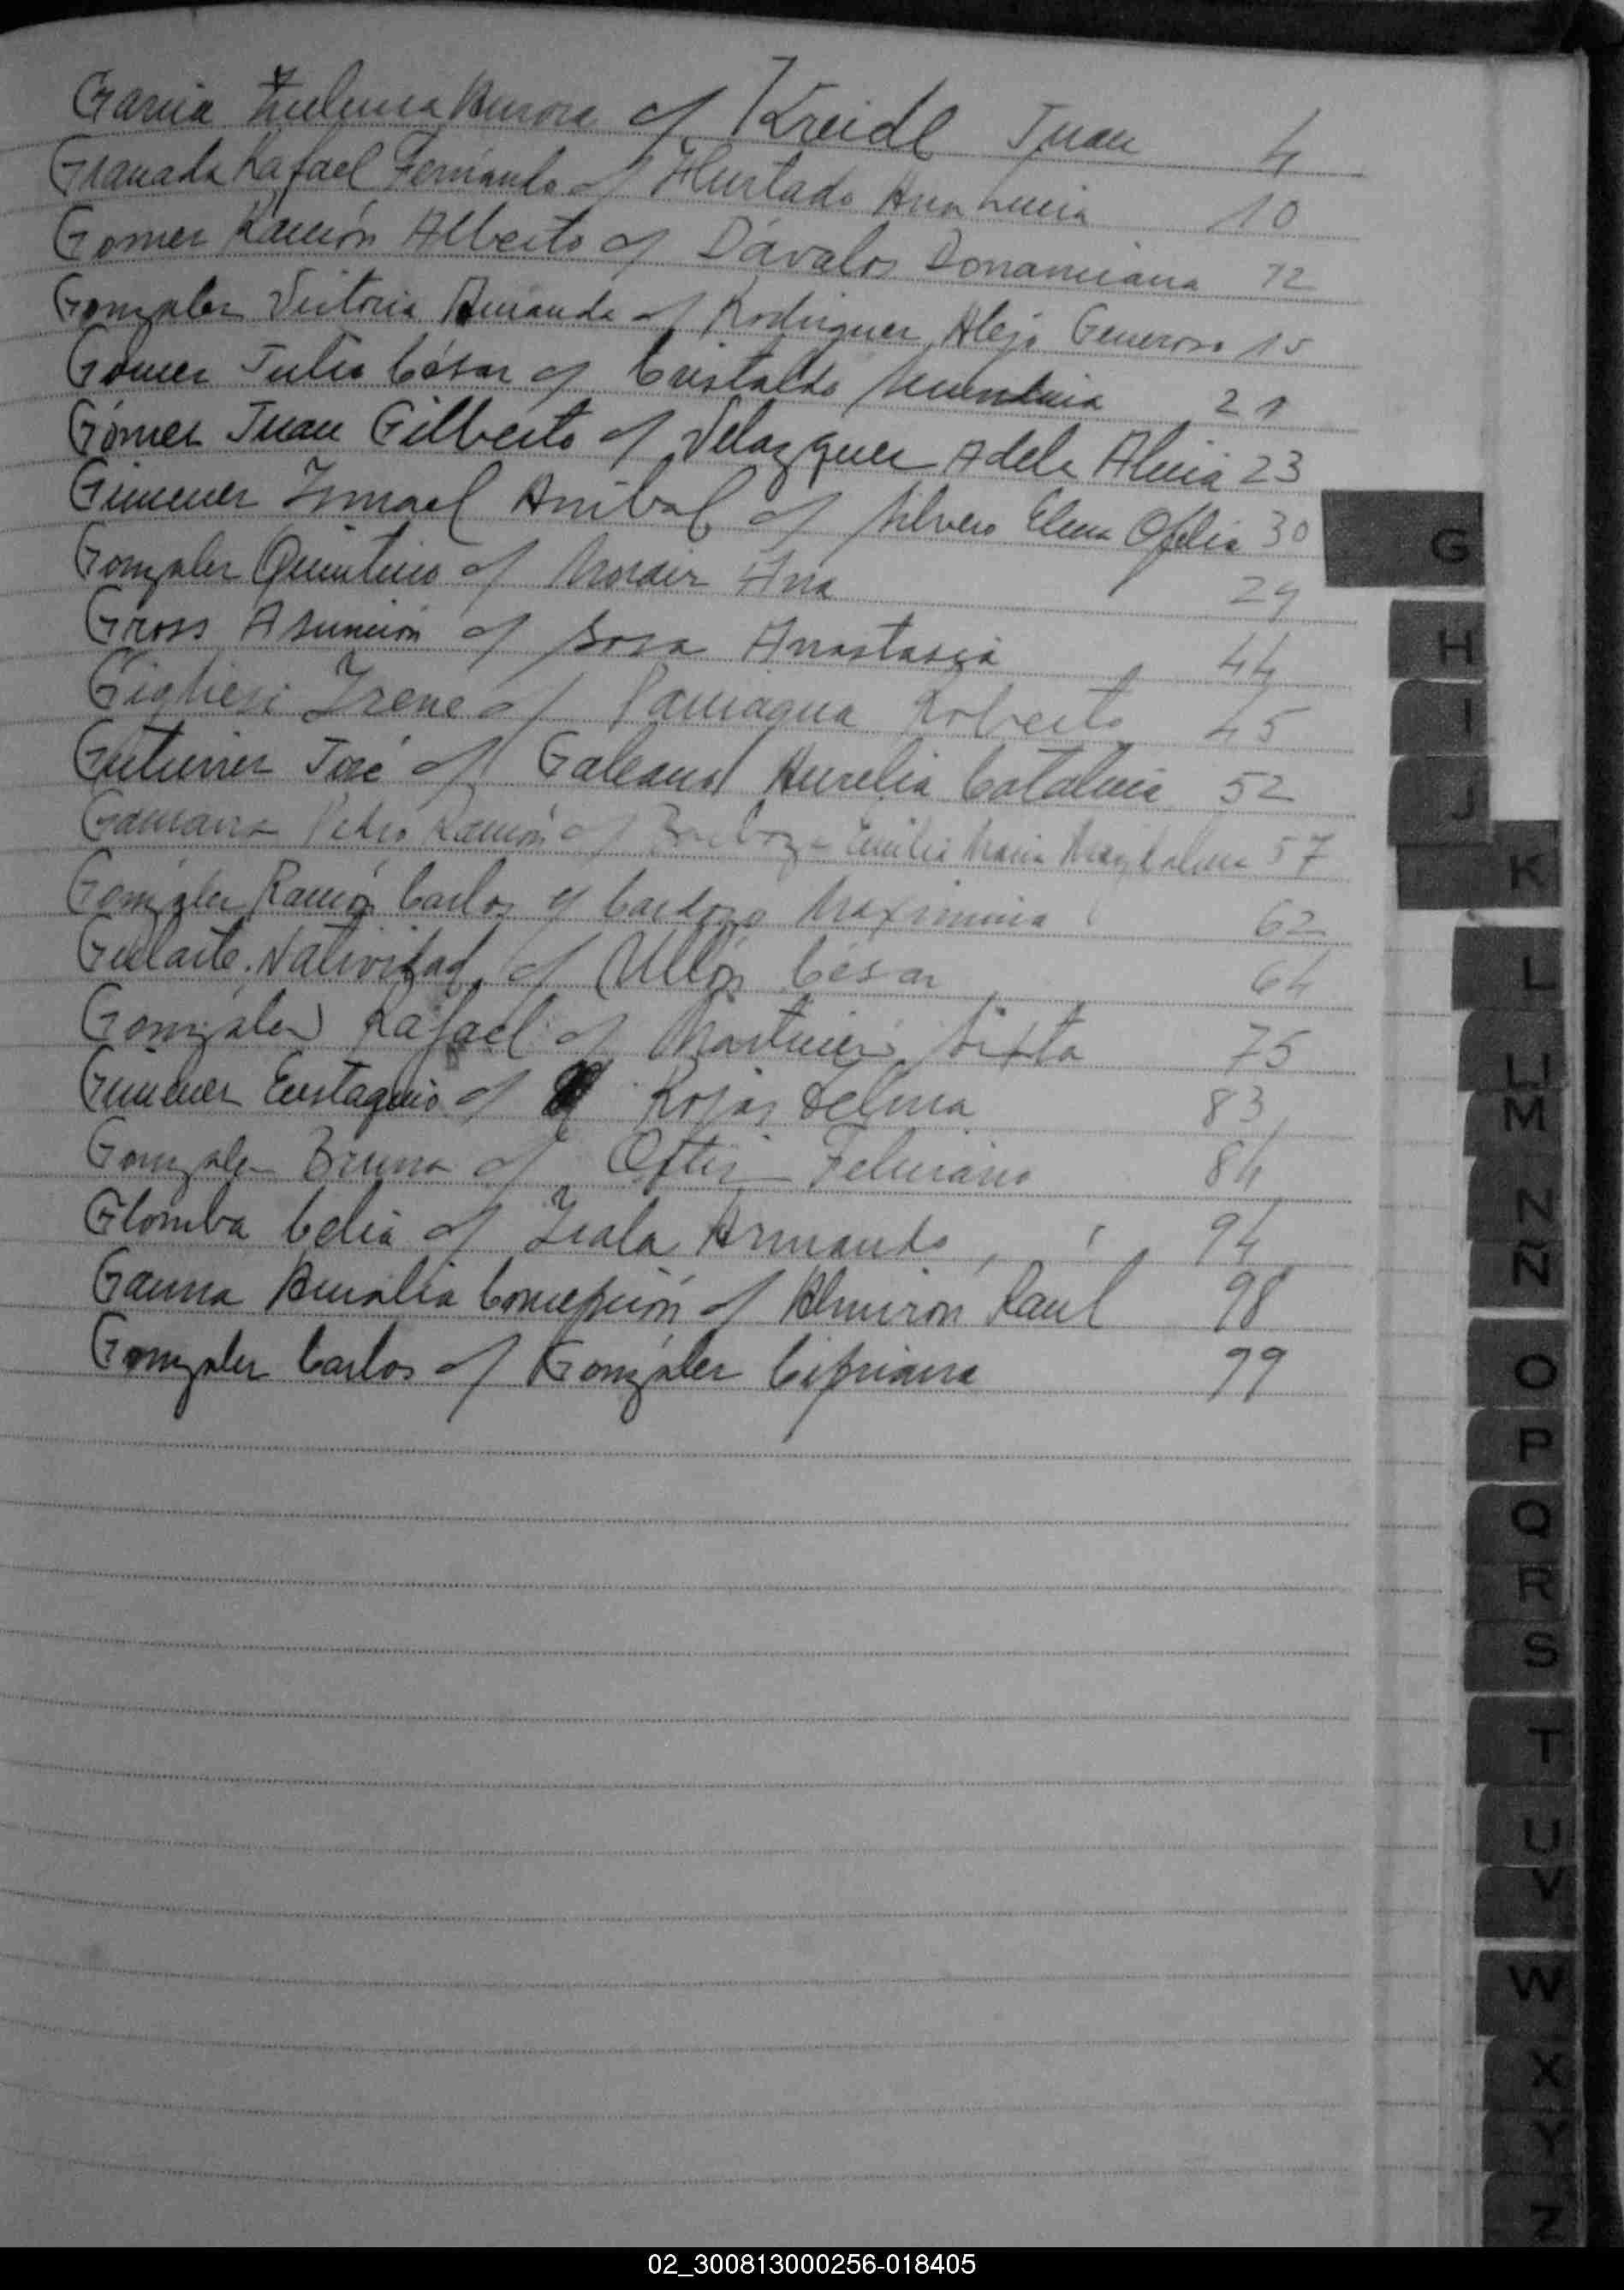 Garcia Zulema Aurora y Kreidl Juan 4
Granada Rafael Fernando y Hurtado Ana Lucia 10
Gomez Ramón Alberto y Dávalos Donanciana 12
Gonzalez Victoria Amanda y Rodriguez Alejo Generoso 15
Gómez Julio César y Cristaldo 21
Gómez Juan Gilberto y Velazquez Adela Alicia 23
Gimenez Ismael Anibal y Silvero Elena Ofelia 30
Gonzalez Quintino y Ana 29
Gross Asunción y Sosa Anastasia 44
Irene y Paniagua Roberto 45
Gutierrez José y Galeano Aurelia Catalina 52
Gamarra Pedro Ramón y Barboza Emilia Maria Magdalena 57
González Ramón Carlos y Cardozo Maximina 62
Gularte Natividad y Ullón César 64
González Rafael y Martinez Sixta 75
Gimenez Eustaquio y Rojas Zelma 83
Gonzalez Bruna y Ortiz Feliciano 84
Glomba Celia y Irala Armando 94
Gauna Amalia Concepción y Almirón Raul 98
Gonzalez Carlos y González Cipriana 99
G
H
I
J
K
L
LL
M
N
Ñ
O
P
Q
R
S
T
U
V
W
X
Y
Z
02_300813000256-018405